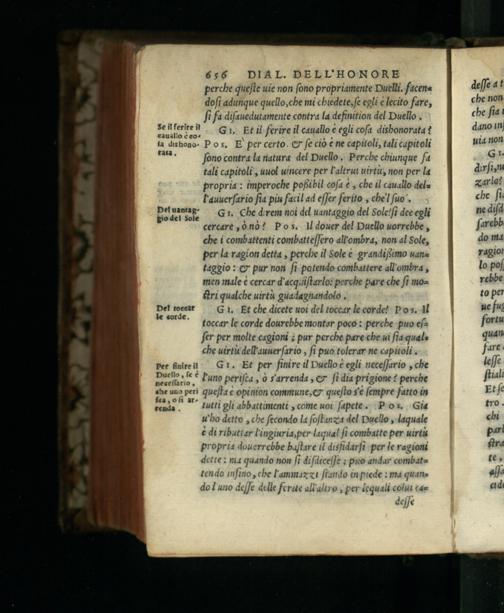 656 DIAL. DELL'HONORE
perche queste uie non sono propriamente Duelli. facen=
dosi adunque quello, che mi chiedete, se egli è lecito fare,
si fa disauedutamente contra la definition del Duello.
Se il ferire il
cauallo è co-
sa dishono-
rata.
G I. Et il ferire il cauallo è egli cosa dishonorata?
P O S. E' per certo. & se ciò è ne capitoli, tali capitoli
sono contra la natura del Duello. Perche chiunque fa
tali capitoli, uuol uincere per l'altrui uirtù, non per la
propria: imperoche possibil cosa è, che il cauallo del=
l'auuersario sia piu facil ad esser ferito, che'l suo.
Del uantag-
gio del Sole
G I. Che direm noi del uantaggio del Sole? si dee egli
cercare, ò nò? P O S. Il douer del Duello uorrebbe,
che i combattenti combattessero all'ombra, non al Sole,
per la ragion detta, perche il Sole è grandißimo uan=
taggio: & pur non si potendo combattere all'ombra,
men male è cercar d'acquistarlo: perche pare che si mo=
stri qualche uirtù guadagnandolo.
Del toccar
le corde.
G I. Et che dicete uoi del toccar le corde? P O S. Il
toccar le corde dourebbe montar poco: perche può es=
ser per molte cagioni; pur perche pare che ui sia qual=
che uirtù dell'auuersario, si può tolerar ne capitoli.
Per finire il
Duello, se è
necessario,
che uno peri
sca, o si ar-
renda.
G I. Et per finire il Duello è egli necessario, che
l'uno perisca, ò s'arrenda, & si dia prigione? perche
questa è opinion commune, & questo s'è sempre fatto in
tutti gli abbattimenti, come uoi sapete. P O S. Gia
u'ho detto, che secondo la sostanza del Duello, laquale
è di ributtar l'ingiuria, per laqual si combatte per uirtù
propria douerrebbe bastare il disfidarsi per le ragioni
dette: ma quando non si disdicesse; può andar combat=
tendo insino, che l'ammazzi stando in piede: ma quan=
do l'uno desse delle ferite all'altro, per lequali colui ca=
desse